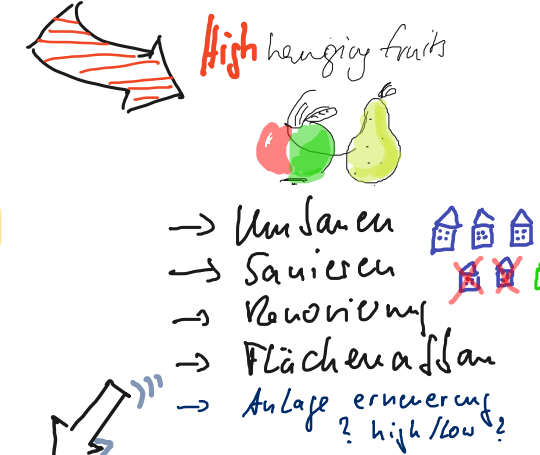 High hanging fruits
→ Umbauen
→ Sanieren
→ Renovierung
→ Flächenabbau
→ Anlage erneuerung
? high/low ?